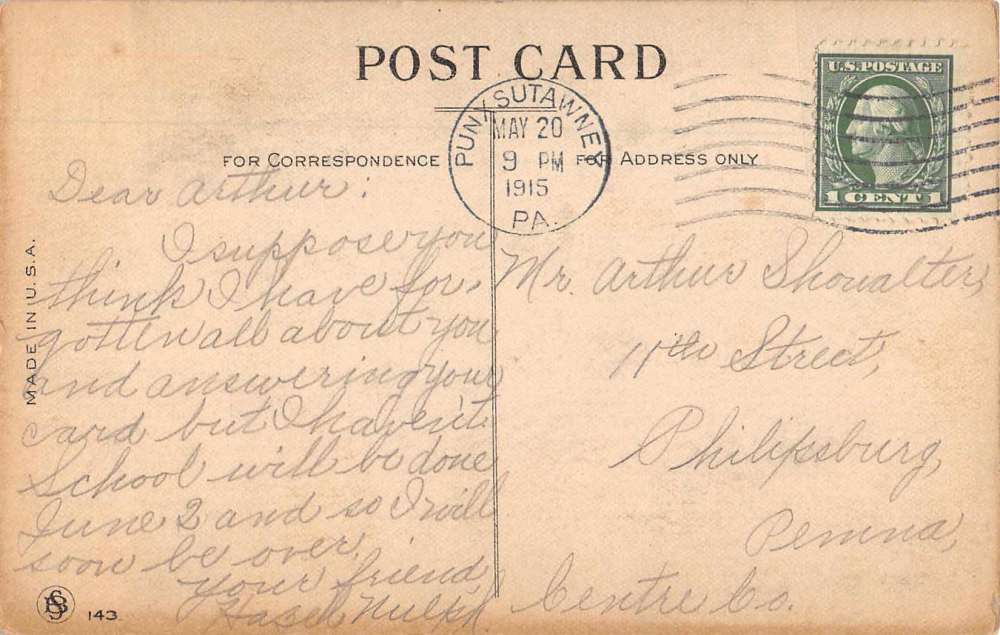 POST CARD
PUNXSUTAWNEY
MAY 20
9 PM
1915
PA.
U.S. POSTAGE
1 CENT 1
FOR CORRESPONDENCE
FOR ADDRESS ONLY
MADE IN U.S.A.
Dear Arthur:
I suppose you
think I have for-
gotten all about you
and answering your
card but I haven't.
School will be done
June 2 and so I will
soon be over.
Your friend,
Hazel
Mr. Arthur Showalter,
11th Street,
Philipsburg,
Penna,
Centre Co.
143